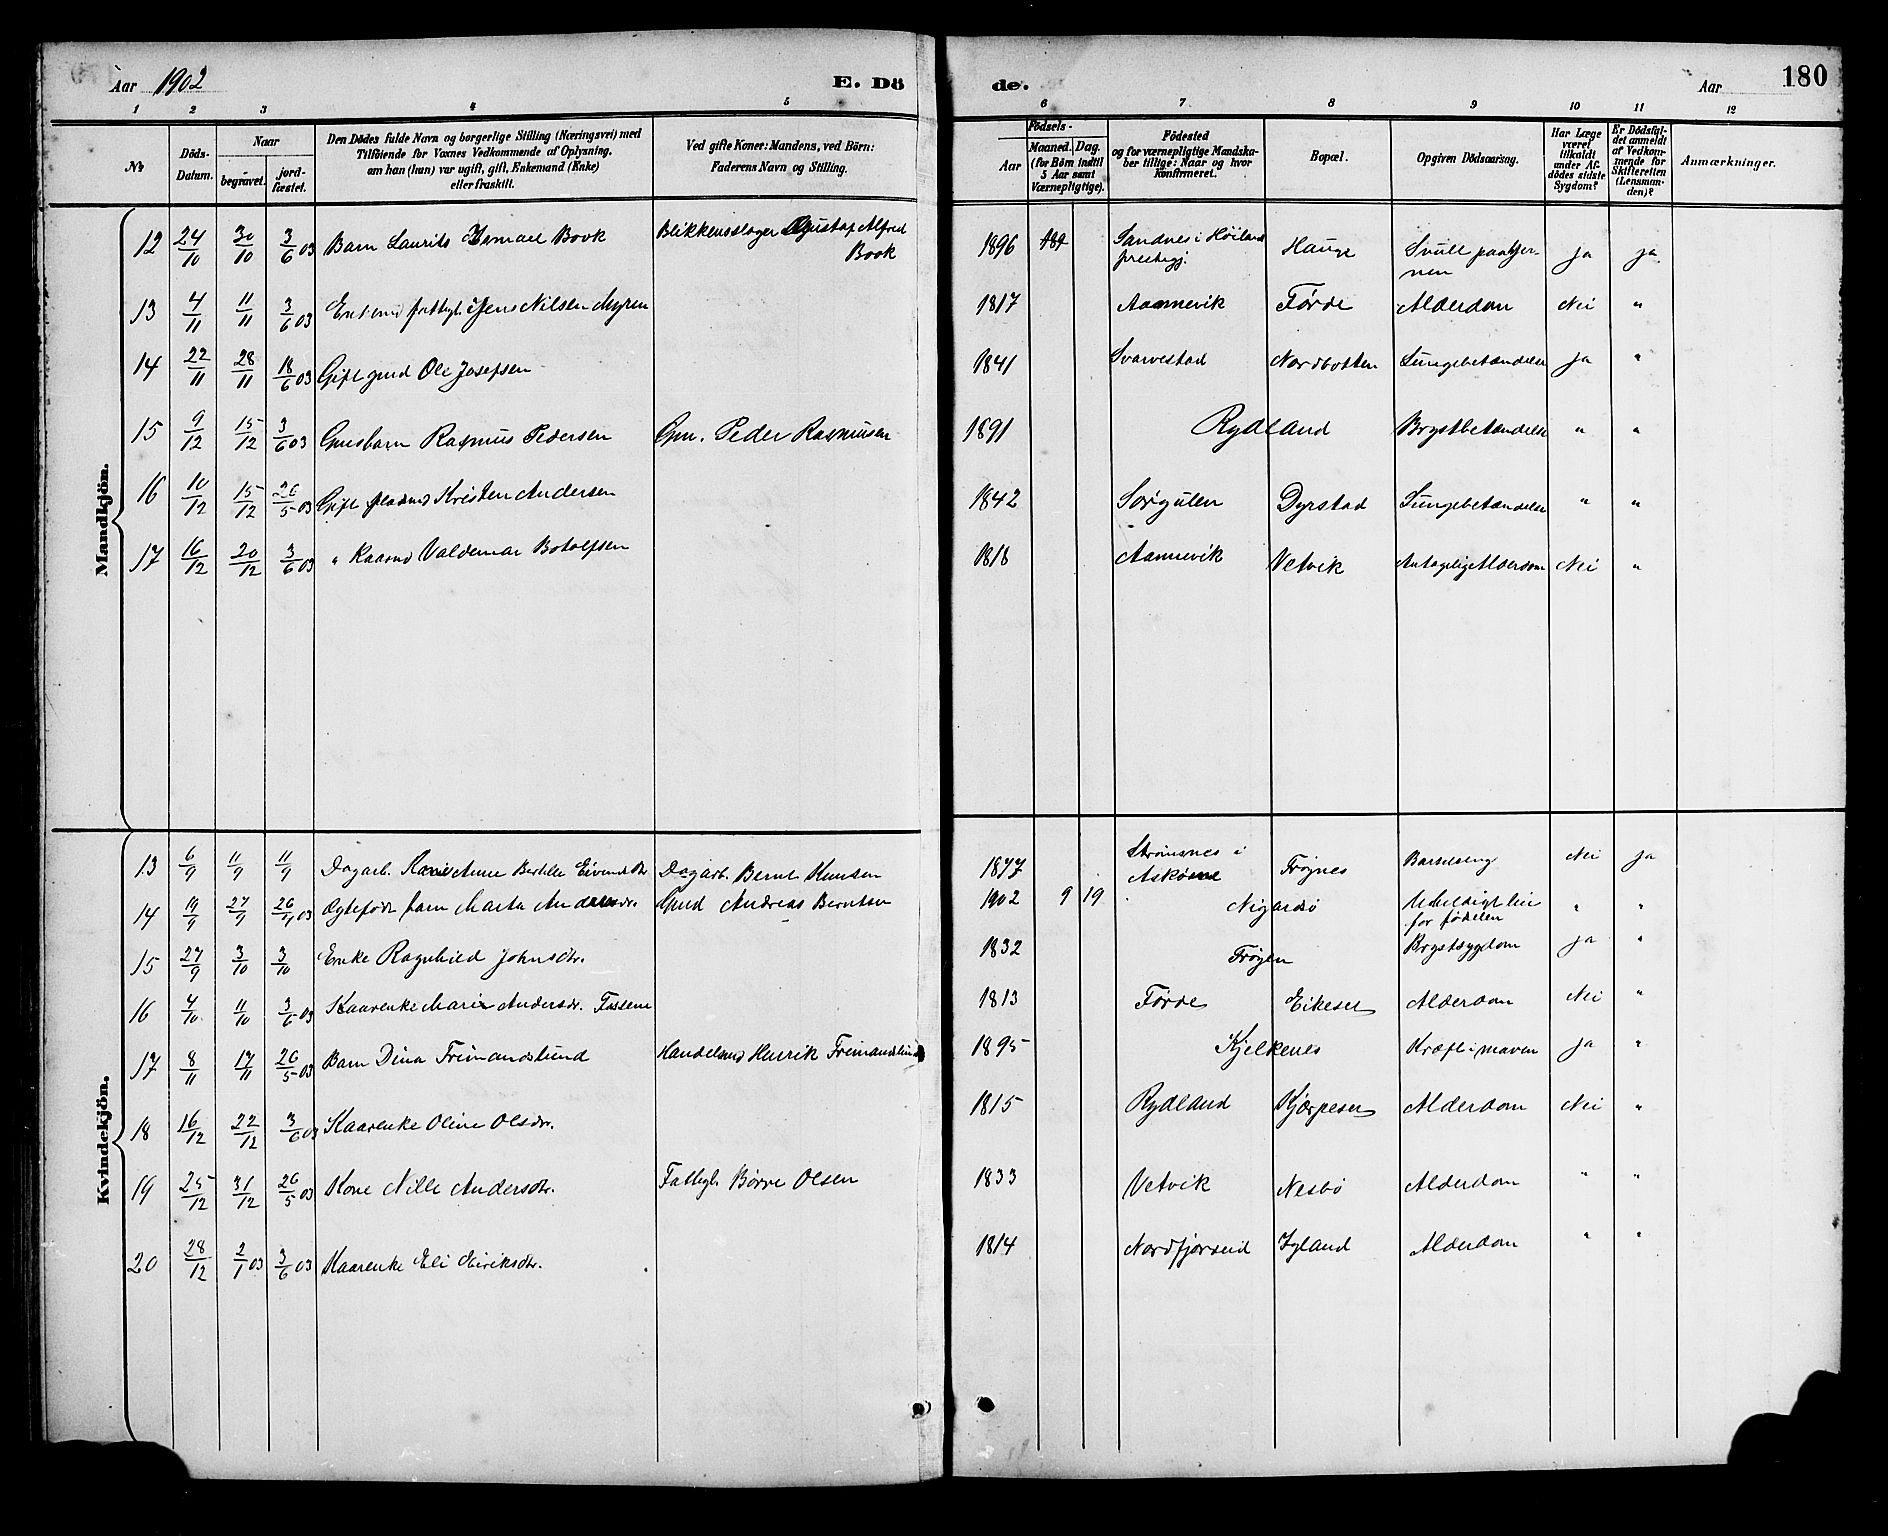 Aar 1902 E. Dö de. Aar 180
1 2 3 4 5 6 7 8 9 10 11 12
№ Döds-Datum. Naar begravet. jord-fæstet. Den Dödes fulde Navn og borgerlige Stilling (Næringsvei) med Tilföiende for Voxnes Vedkommende af Oplysning, om han (hun) var ugift, gift, Enkemand (Enke) eller fraskilt. Ved gifte Koner: Mandens, ved Börn: Faderens Navn og Stilling. Födsels- Aar Maaned. Dag. (for Börn indtil 5 Aar samt Værnepligtige). Födested og for værnepligtige Mandskaber tillige: Naar og hvor Konfirmeret. Bopæl. Opgiven Dödsaarsag. Har Læge været tilkaldt under Afdödes sidste Sygdom? Er Dödsfaldet anmeldt af Vedkommende for Skifteretten (Lensmanden)? Anmærkninger.
Mandkjön.
12 24/10 30/10 3/6 03 Barn Laurits Book Blikkenslager Gustaf Alfred Book 1896 Sandnes i Höiland prestegj. Hauge Svull paa hjernen ja ja
13 4/11 11/11 3/6 03 Jens Nilsen Myren 1817 Aannevik Førde Alderdom Nei "
14 22/11 28/11 18/6 03 Gift gmd Ole Josefsen 1841 Svarvestad Nordbotten Lungebetændelse ja "
15 9/12 15/12 3/6 03 Gmsbarn Rasmus Pedersen Gm. Peder Rasmussen 1891 Rydland Brystbetændelse " "
16 10/12 15/12 26/5 03 Gift pladsmd Kristen Andersen 1842 Sørgulen Dyrstad Lungebetændelse " "
17 16/12 20/12 3/6 03 " Kaarmd Valdemar Botolfsen 1818 Aannevik Vetvik Antagelig Alderdom Nei "
Kvindekjön.
13 6/9 11/9 11/9 Dagarb. Kone Anne Bertille Eivindsdtr Dagarb. Bernt Knutsen 1877 Strömsnes i Askövne Frøjnes Barselseng Nei ja
14 19/9 27/9 26/9 03 Ægtefødt barn Marta Andreasdr. Gmd Andreas Berntsen 1902 9 19 Nigardsö Uheldigt leie for fødselen " "
15 27/9 3/10 3/10 Enke Ragnhild Johnsdtr. 1832 Frøyen Brystsygdom ja "
16 4/10 11/10 3/6 03 Kaarenke Marie Andersdr. 1813 Førde Eikeset Alderdom Nei "
17 8/11 17/11 26/5 03 Barn Dina Freimandslund Handelsmd Henrik Freimandslund 1895 Kjelkenes Kræft i maven ja "
18 16/12 22/12 3/6 03 Kaarenke Oline Olsdr. 1815 Rydland Kjørpeset Alderdom Nei "
19 25/12 31/12 26/5 03 Kone Nille Andersdtr. Fattigl. Börre Olsen 1833 Vetvik Nesbö Alderdom " "
20 28/12 2/1 03 3/6 03 Kaarenke Eli Eiriksdtr. 1814 Nordfjordeid Igland Alderdom " "